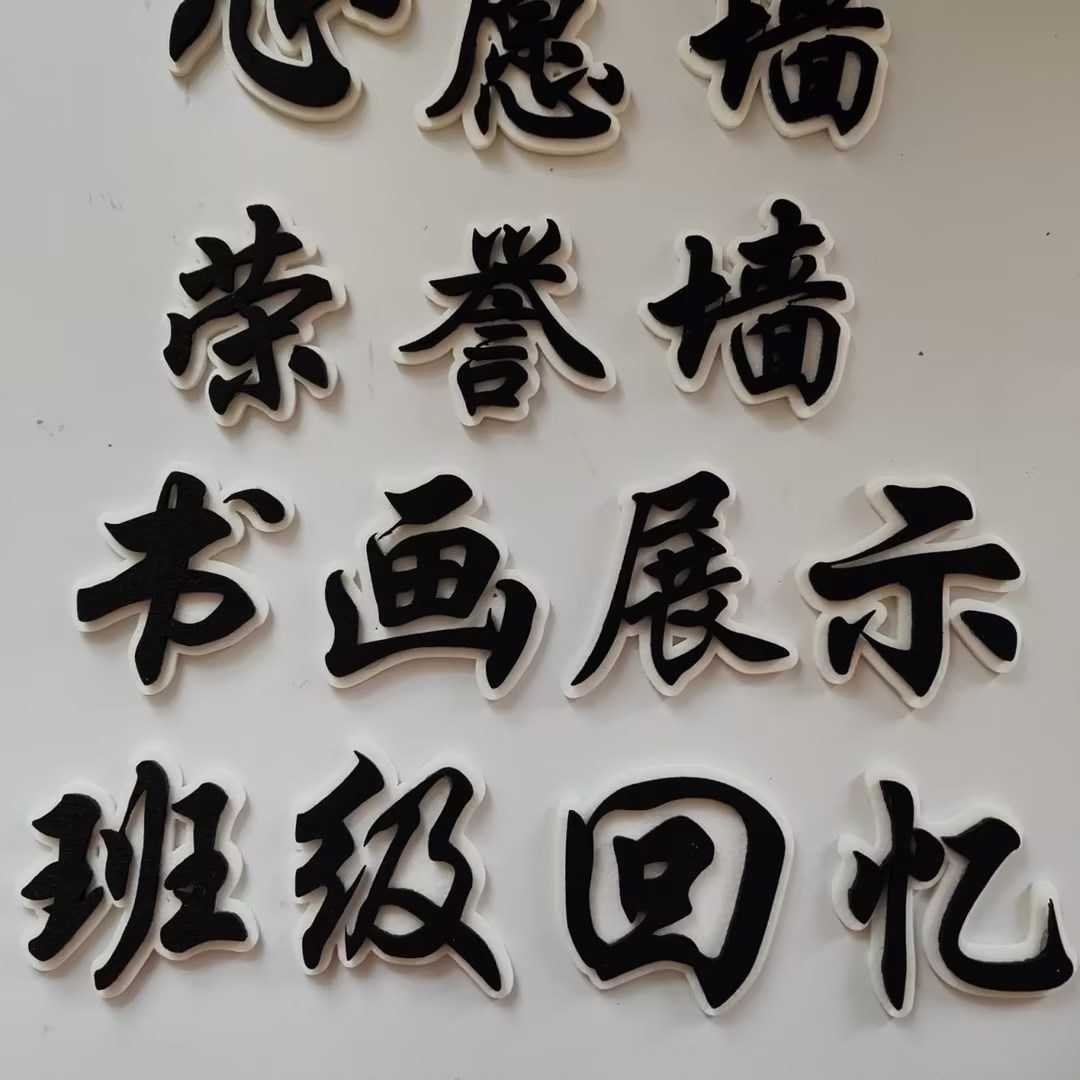 心愿墙
荣誉墙
书画展示
班级回忆